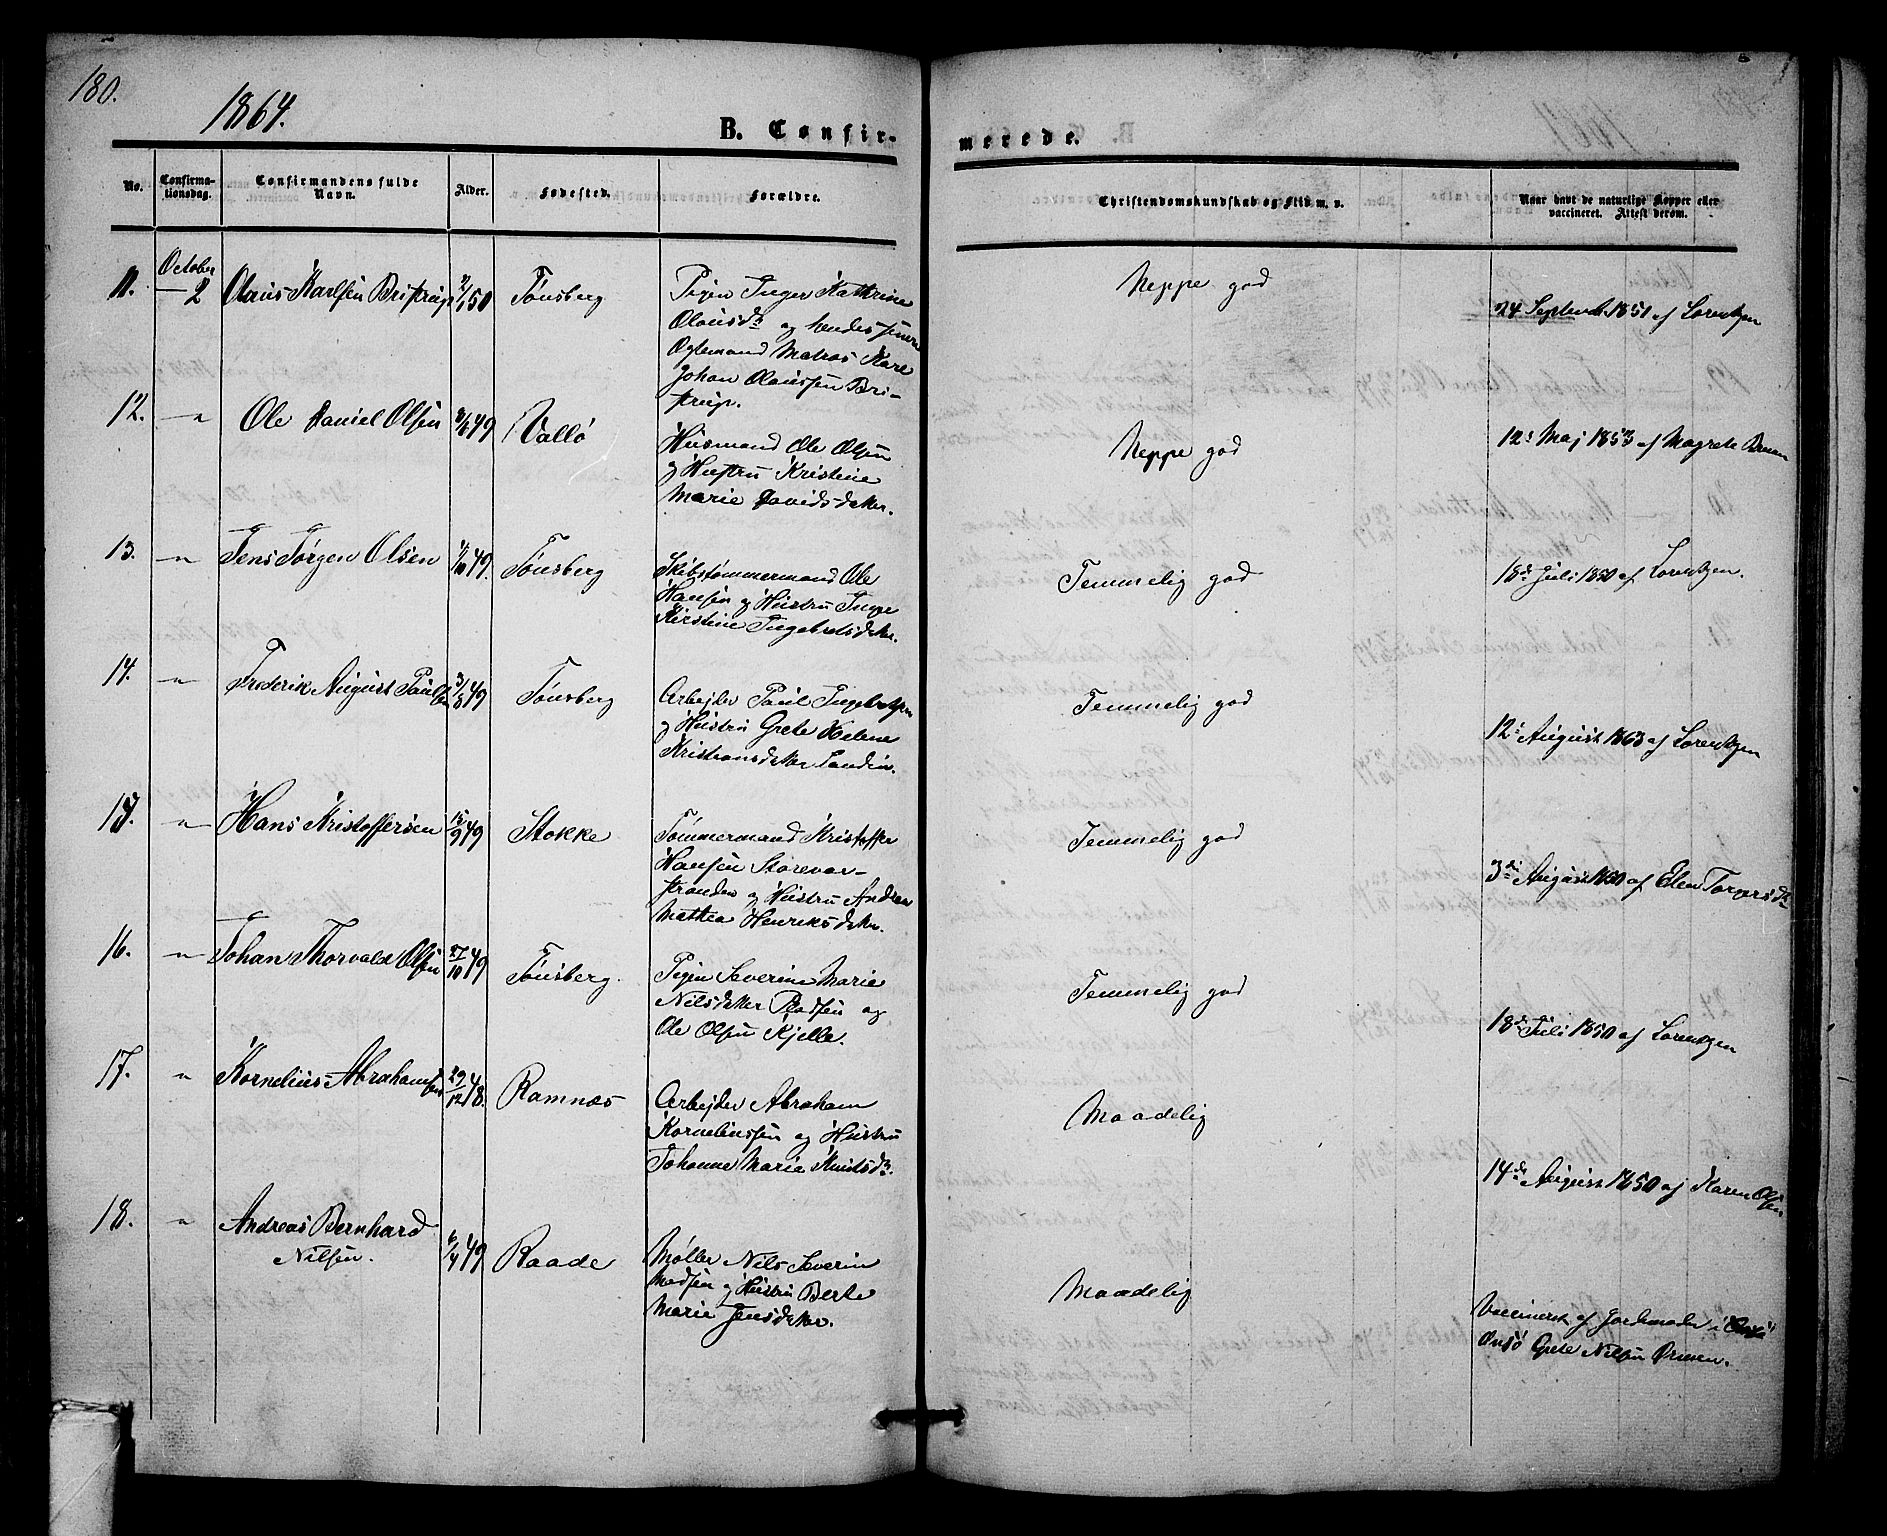 180.
1864.
B. Confir-
merede.
No.
Confirma-
tionsdag.
Confirmandens fulde
Navn.
Alder.
Fødested.
Forældre.
Christendomskundskab og Flid m. v.
Naar havt de naturlige Kopper eller
vaccineret. Attest derom.
October
11. — 2 Olaus Karlsen Bristrup /50 Tönsberg
Pigen Inger Kathrine
Olausdr og hendes senere
Ægtemand Matros Kare
Johan Olaussen Bri-
strup.
Neppe god
24 Septembr 1851 af Lorentzen
12. — " Ole Daniel Olsen 49 Vallö
Husmand Ole Olsen
og Hustru Kristine
Marie Davidsdatter.
Neppe god
12te Maj 1853 af Magrete Bruun
13. — " Jens Jörgen Olsen /10 49. Tönsberg
Skibstömmermand Ole
Hansen og Hustru Inge
Kirstine Ingebretsdatter.
Temmelig god
18de Juli 1850 af Lorentzen.
14. " Frederik August Paulsen 3/8 49 Tönsberg
Arbejder Paul Ingebretsen
og Hustru Grete Helene
Kristiansdatter Sandin.
Temmelig god
12te August 1863 af Lorentzen
15. " Hans Kristoffersen 15/9 49 Stokke
Tömmermand Kristoffer
Hansen Storevar-
stranden og Hustru Andrea
Mathea Henriksdatter.
Temmelig god
3die August 1850 af Elen Torgersdr
16. " Johan Thorvald Olsen 27/10 49 Tönsberg.
Pigen Severine Marie
Nilsdatter Pladsen og
Ole Olsen Kjelle.
Temmelig god
18de Juli 1850 af Lorentzen
17. " Kornelius Abrahamsen 29/12 48. Ramnæs
Arbejder Abraham
Korneliussen og Hustru
Johanne Marie Knutsdr.
Maadelig
14de August 1850 af Karen Olsen
18. " Andreas Bernhard
Nilsen. 6/4 49 Raade
Møller Nils Severin
Madsen og Hustru Berte
Marie Jensdatter.
Maadelig
Vaccineret af Jordemoder i
Onsö Grete Nilsen Ørmen.